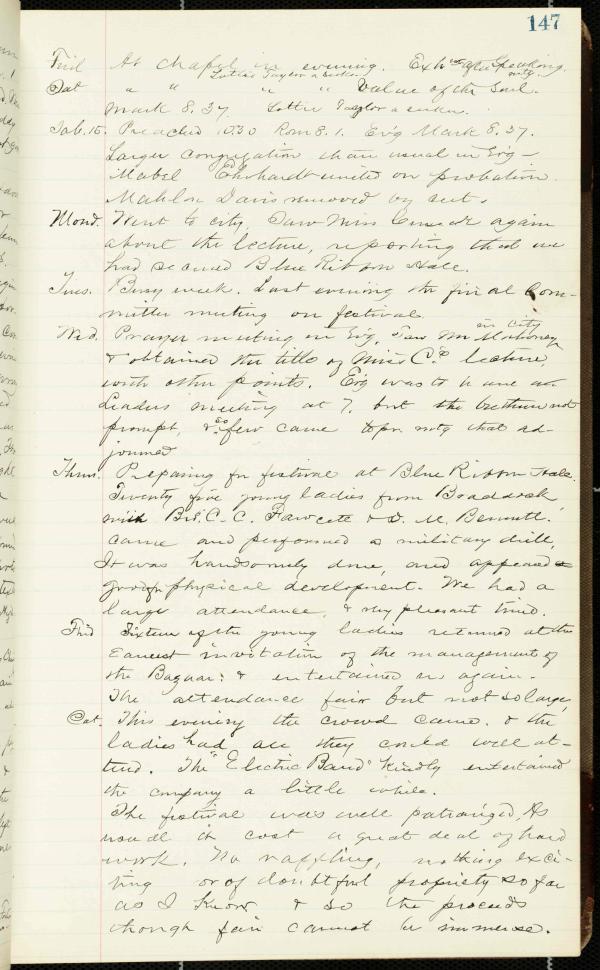 147
Frid At Chapel in evening. Exhn after Speaking mtg.
Lottie Taylor a seeker.
Sat " " " " Value of the Soul.
Mark 8.37. Lottie Taylor a seeker.
Sab. 15. Preached 10.30 Rom 8.1. Ev'g Mark 8.37.
Larger congregation than usual in Ev'g—
Mabel Ehrhardt united on probation.
Mahlon Davis removed by cert.
Mond. Went to city. Saw Miss again
about the lecture, reporting that we
had secured Blue Ribbon Hall.
Tues. Busy week. Last evening the final Com-
mittee meeting on festival.
Wed. Prayer meeting in Ev'g. Saw Mr Mahoney in city
& obtained the title of Miss C's lecture,
with other points. Ev'g was to have a
Leaders meeting at 7, but the brethren not
prompt, & so few came to pr. mtg that ad-
journed
Thurs. Preparing for festival at Blue Ribbon Hall.
Twenty five young ladies from Braddock
with Bro. C. C. Fawcett & D. M. Bennett.
came and performed a military drill,
It was handsomely done, and appeared
good for physical development. We had a
large attendance, & very pleasant time.
Frid Sixteen of the young ladies returned at the
Earnest invitation of the management of
the Bazaar: & entertained us again.
The attendance fair but not so large,
Sat. This evening the crowd came. & the
ladies had all they could well at-
tend. The "Electric Band" kindly entertained
the company a little while.
The festival was well patronized. As
usual it cost a great deal of hard
work. No raffling, nothing exci-
ting or of doubtful propriety so far
as I know & so the proceeds
though fair cannot be immense.